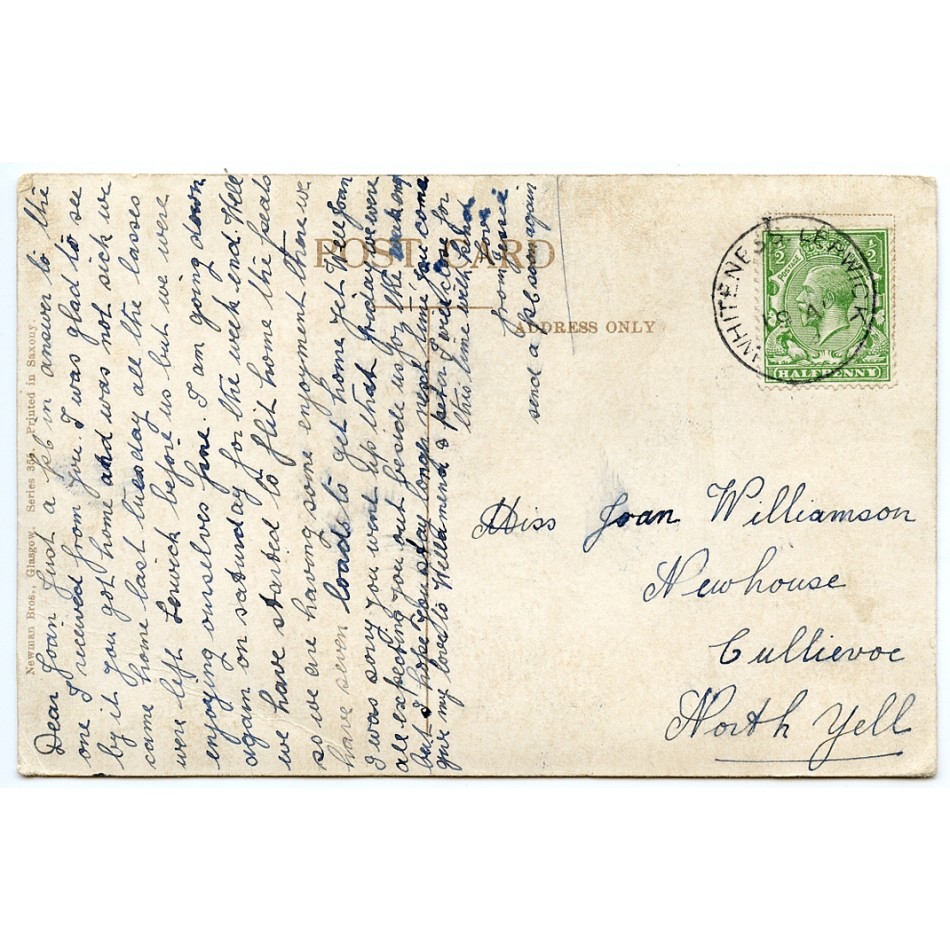 POST CARD
ADDRESS ONLY
Newman Bros., Glasgow. Series 35. Printed in Saxony.
WHITENESS LERWICK
HALFPENNY
Dear Joan Just a pc in answer to the
one I received from you. I was glad to see
by it you got home and was not sick we
came home last tuesday all the lasses
were left Lerwick before us but we were
enjoying ourselves fine. I am going down
again on saturday for the week end. Well
we have started to flit home the peats
so we are havong some enjoyment there we
have seven loads to get home yet. Well Joan
I was sorry you went up that friday we were
all expecting you out beside us for the
but I hope you stay longer next time you come
give my love to Willamena & per I will close for
this time with kind
love
from
send a pc soon again
Miss Joan Williamson
Newhouse
Cullievoe
North Yell